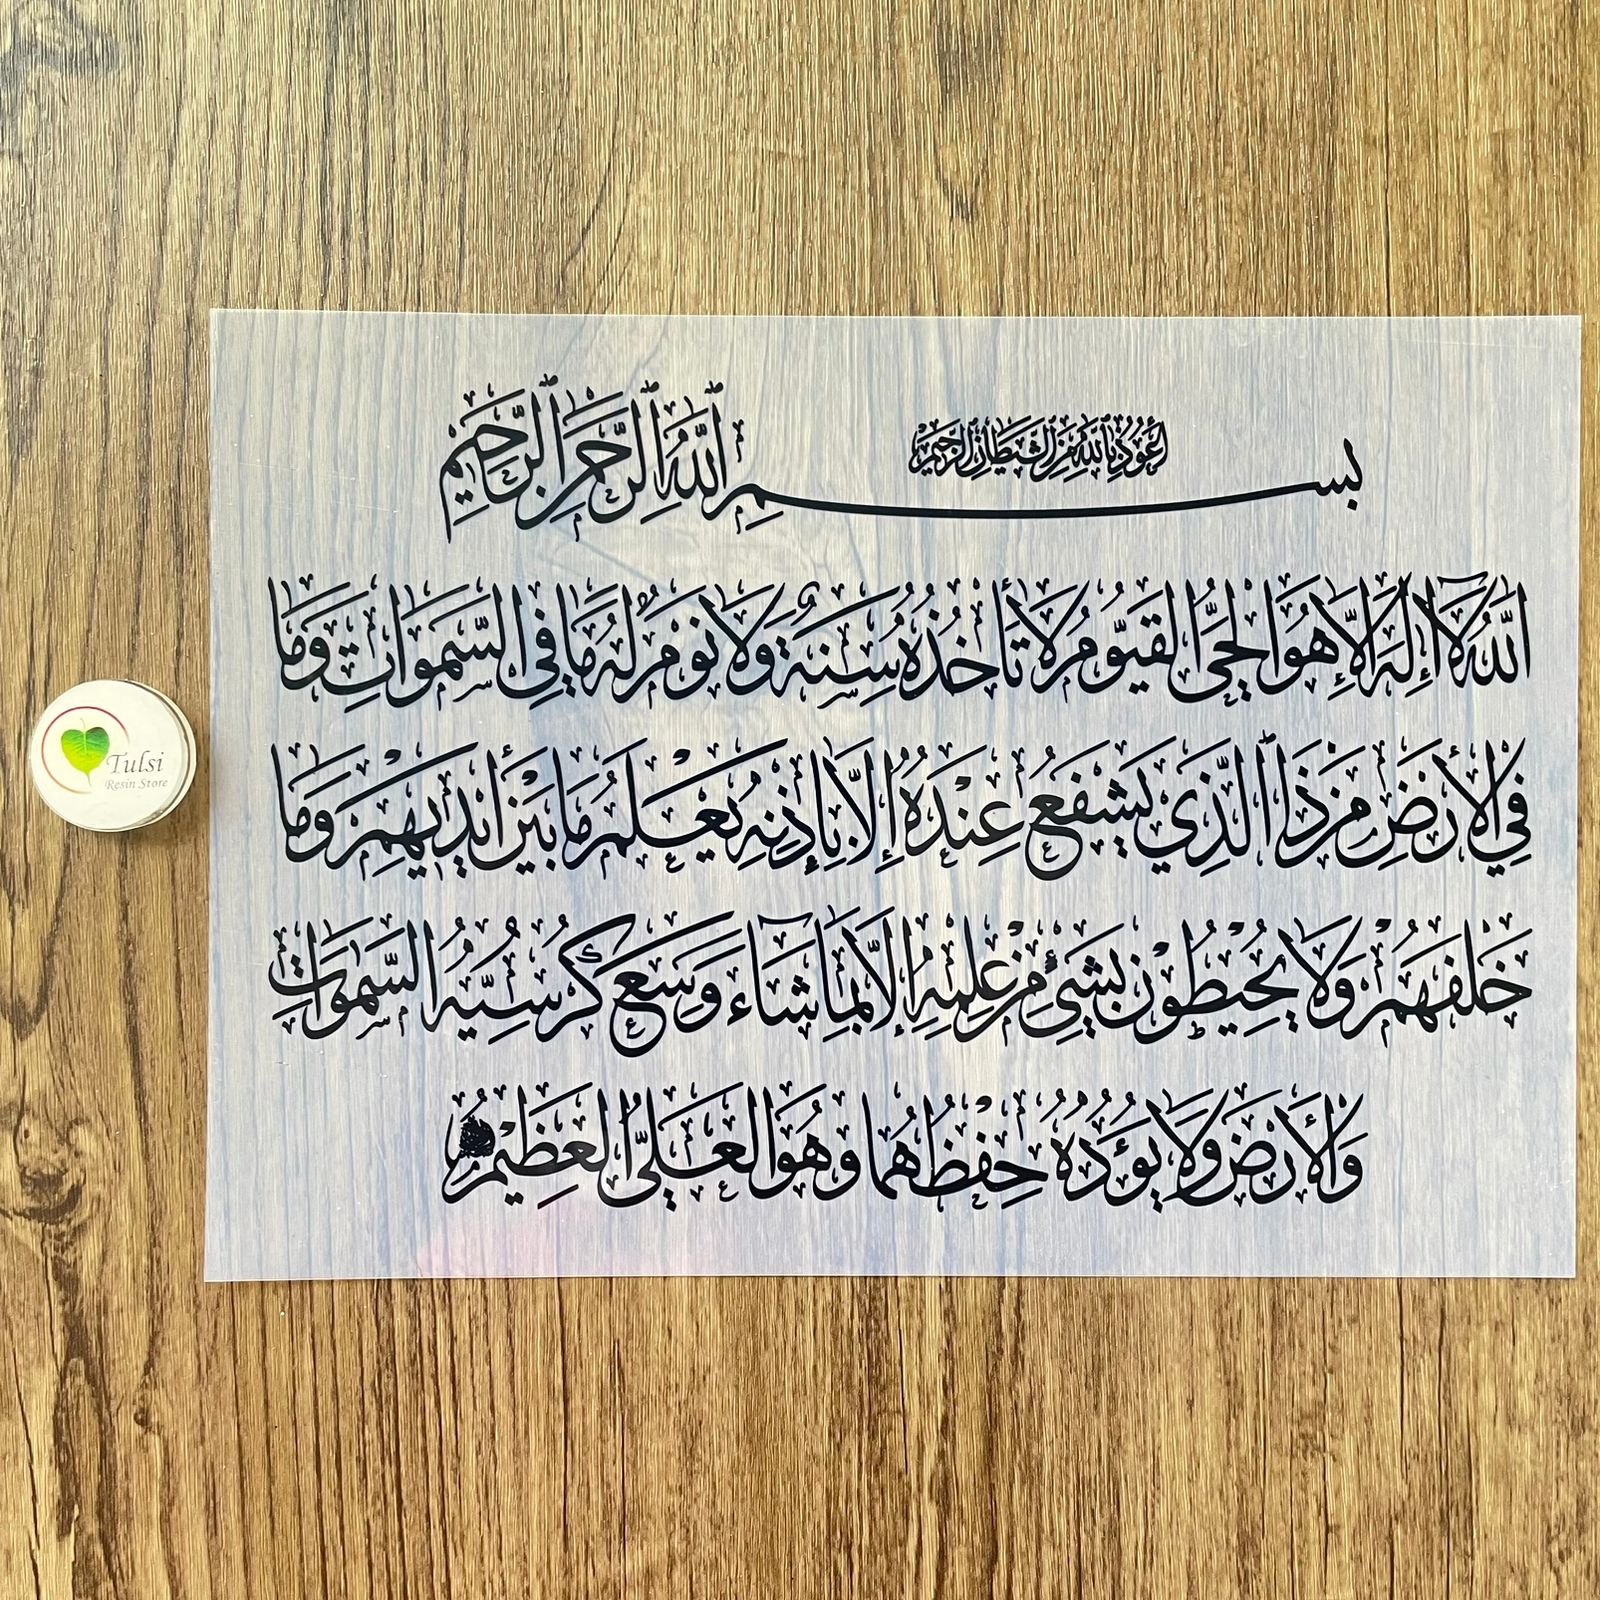 أعوذ بالله من الشيطان الرجيم
بسم ٱلله ٱلرحمن ٱلرحيم
الله لا إله إلا هو الحي القيوم لا تأخذه سنة ولا نوم له ما في السموات وما
في الأرض من ذا الذي يشفع عنده إلا بإذنه يعلم ما بين أيديهم وما
خلفهم ولا يحيطون بشيء من علمه إلا بما شاء وسع كرسيه السموات
والأرض ولا يؤده حفظهما وهو العلي العظيم
Tulsi
Resin Store